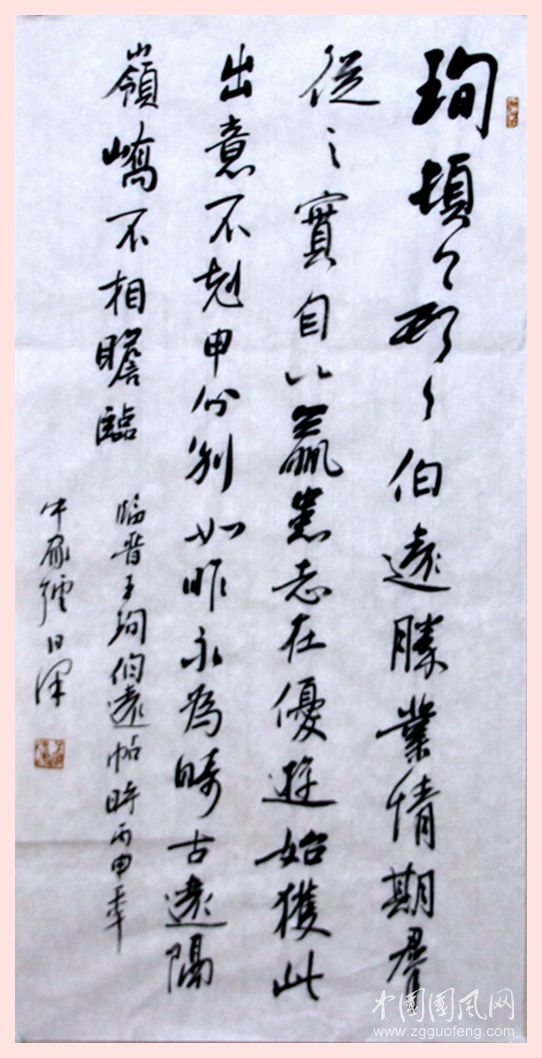 珣頓〻首〻伯遠勝業情期羣
從之寶自以羸患志在優遊始獲此
出意不剋申分別如昨永為疇古遠隔
嶺嶠不相瞻臨
臨晉王珣伯遠帖時丙申年
中國國风网
www.zgguofeng.com